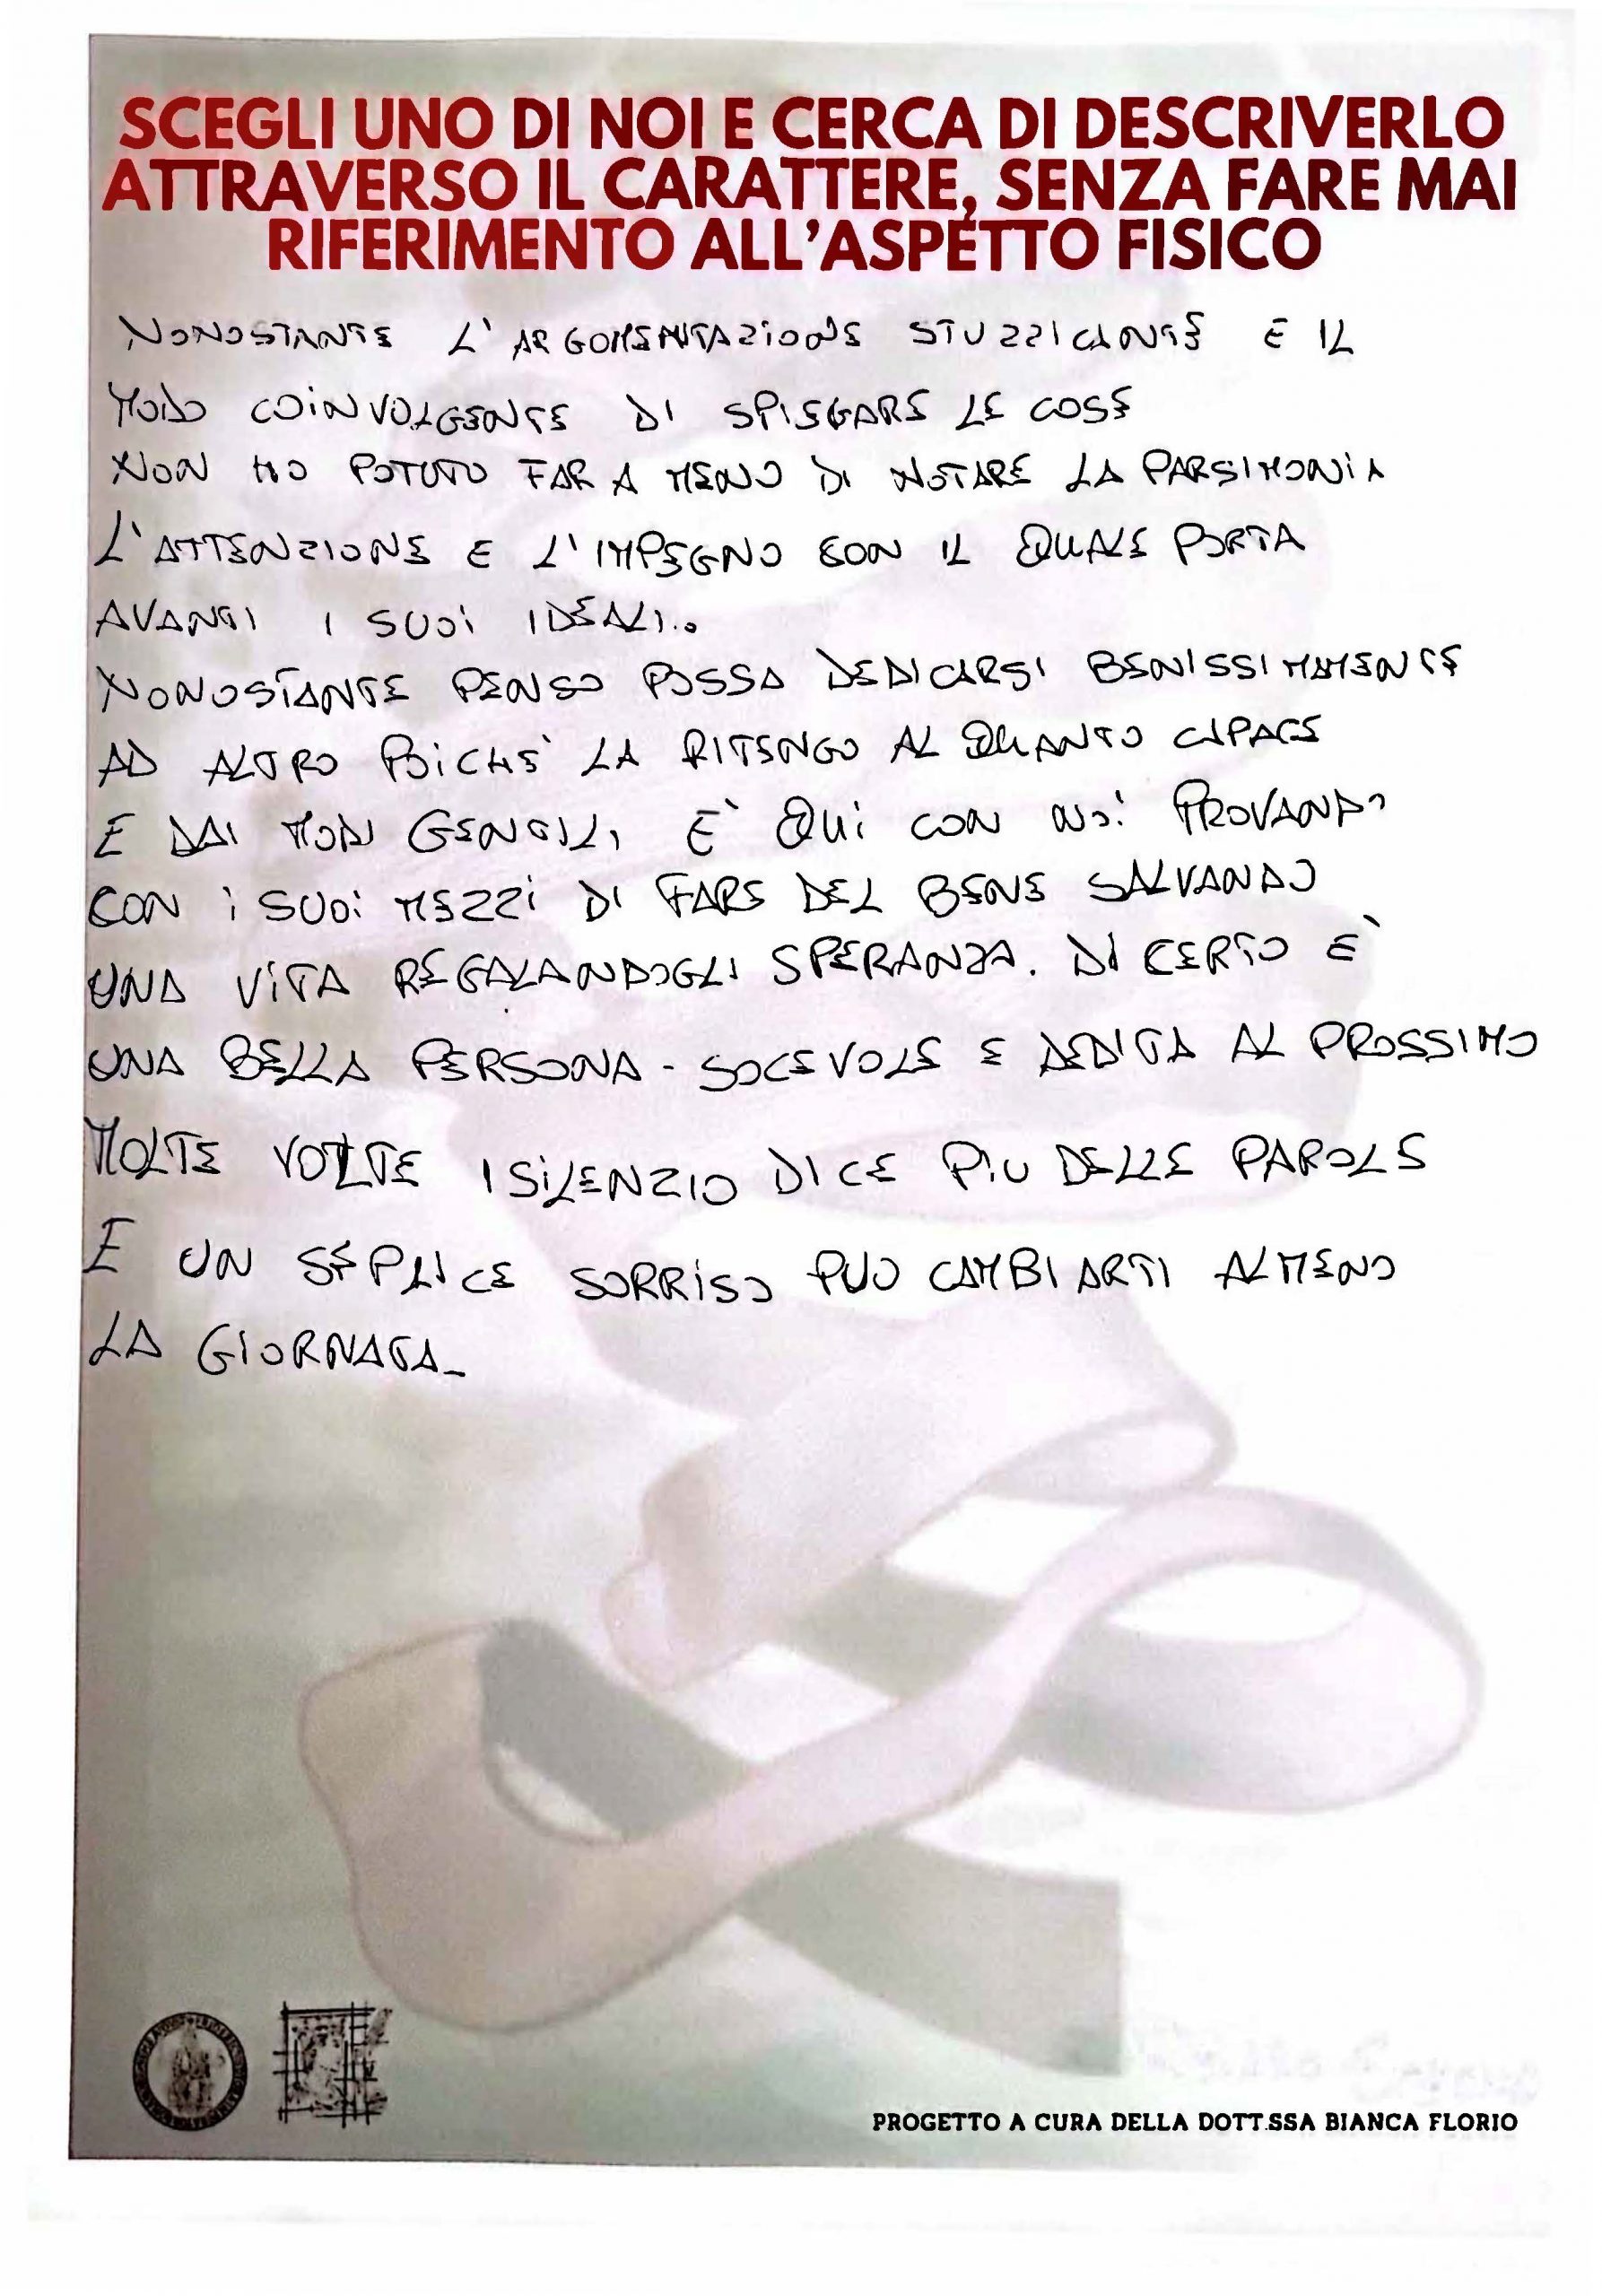 SCEGLI UNO DI NOI E CERCA DI DESCRIVERLO
ATTRAVERSO IL CARATTERE, SENZA FARE MAI
RIFERIMENTO ALL'ASPETTO FISICO
NONOSTANTE L'ARGOMENTAZIONE STUZZICANTE E IL
MODO COINVOLGENTE DI SPIEGARE LE COSE
NON HO POTUTO FAR A MENO DI NOTARE LA PARSIMONIA
L'ATTENZIONE E L'IMPEGNO CON IL QUALE PORTA
AVANTI I SUOI IDEALI..
NONOSTANTE PENSO POSSA DEDICARSI BENISSIMAMENTE
AD ALTRO POICHÈ LA RITENGO AL QUANTO CAPACE
E DAI MODI GENTILI, È QUI CON NOI PROVANDO
CON I SUOI MEZZI DI FARE DEL BENE SALVANDO
UNA VITA REGALANDOGLI SPERANZA. DI CERTO È
UNA BELLA PERSONA - SOCEVOLE E DEDITA AL PROSSIMO
MOLTE VOLTE I SILENZIO DICE PIU DELLE PAROLE
E UN SÉPLICE SORRISO PUO CAMBIARTI ALMENO
LA GIORNATA_
PROGETTO A CURA DELLA DOTT.SSA BIANCA FLORIO